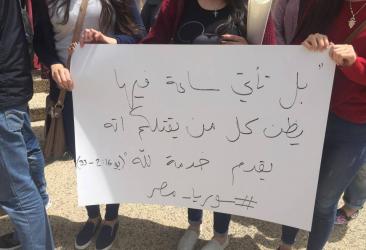 "بل تأتي ساعة فيها
يظن كل من يقتلكم انه
يقدم خدمة لله"
#سوريا_مصر